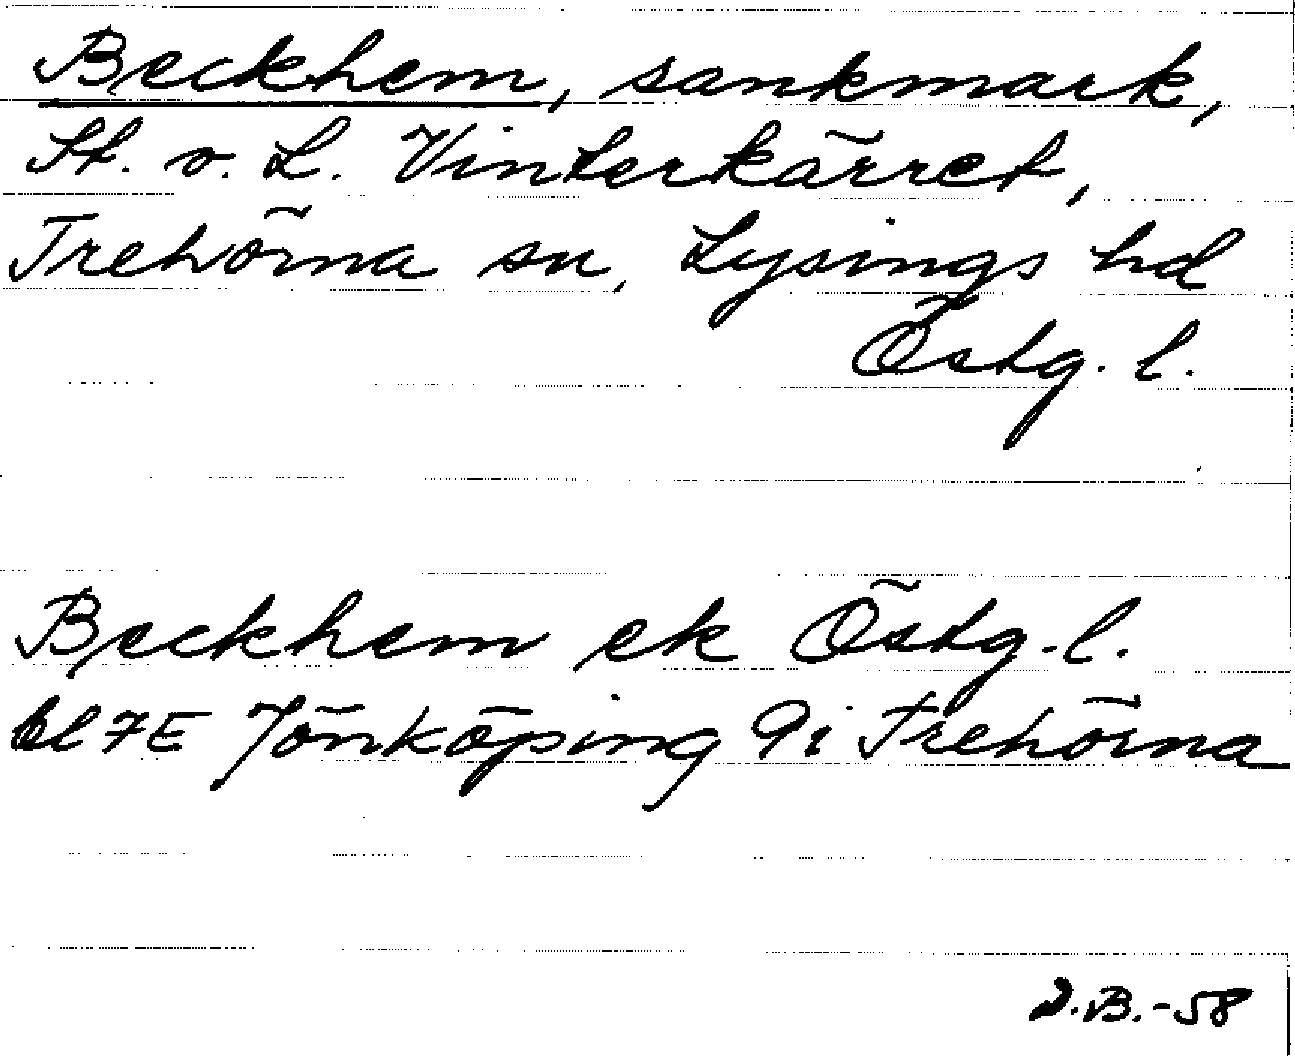 Beckhem, sankmark,
St. o. L. Vinterkärret,
Trehörna sn, Lysings hd
Östg. l.
Beckhem ek Östg. l.
bl 7E Jönköping 9i Trehörna
D.B.-58